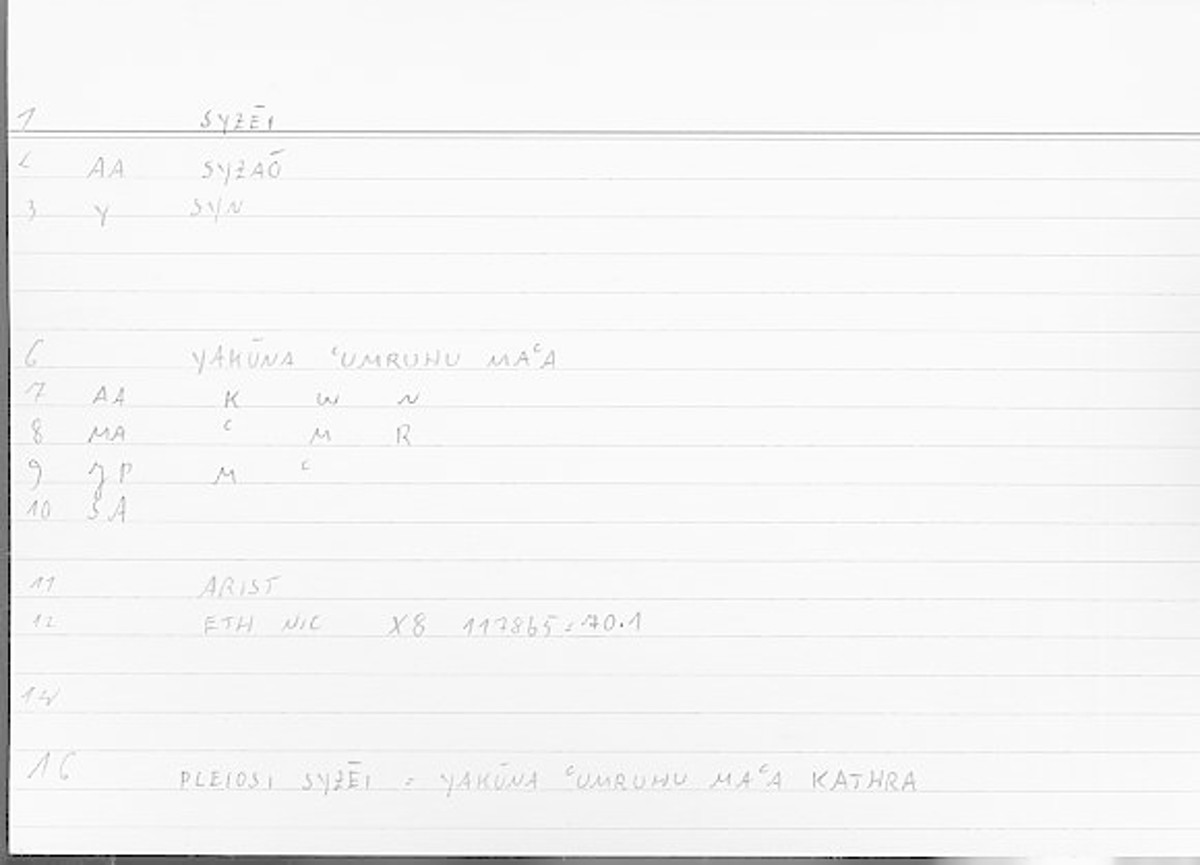 1 SYZĒI
2 AA SYZAŌ
3 Y SYN
6 YAKŪNA ʿUMRUHU MAʿA
7 AA K W N
8 MA ʿ M R
9 JP M ʿ
10 SA
11 ARIST
12 ETH NIC X8 117865 = 70.1
14
16 PLEIOSI SYZĒI = YAKŪNA ʿUMRUHU MAʿA KATHRA